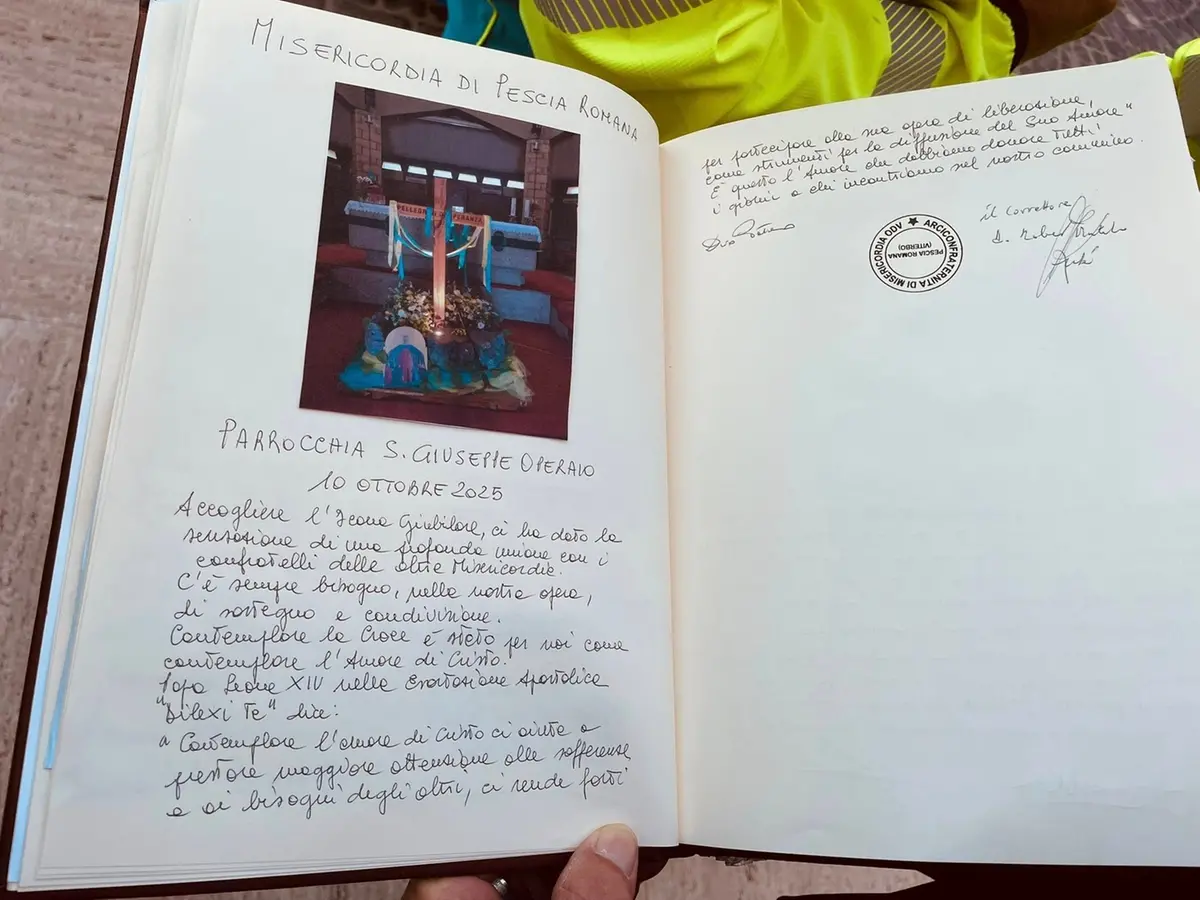 MISERICORDIA DI PESCIA ROMANA
PELLEGRINI DI SPERANZA
PARROCCHIA S. GIUSEPPE OPERAIO
10 OTTOBRE 2025
Accogliere l'Icona Giubilare, ci ha dato la
sensazione di una profonda unione con i
confratelli delle altre Misericordie.
C'è sempre bisogno, nella nostra opera,
di sostegno e condivisione.
Contemplare la Croce è stato per noi come
contemplare l'Amore di Cristo.
Papa Leone XIV nella Esortazione Apostolica
"Dilexi Te" dice:
"Contemplare l'amore di Cristo ci aiuta a
prestare maggiore attenzione alle sofferenze
e ai bisogni degli altri, ci rende forti
per partecipare alla sua opera di liberazione,
come strumenti per la diffusione del Suo Amore"
È questo l'Amore che dobbiamo donare tutti i
giorni a chi incontriamo nel nostro cammino.
il correttore
ARCICONFRATERNITA DI MISERICORDIA ODV
PESCIA ROMANA
(VITERBO)